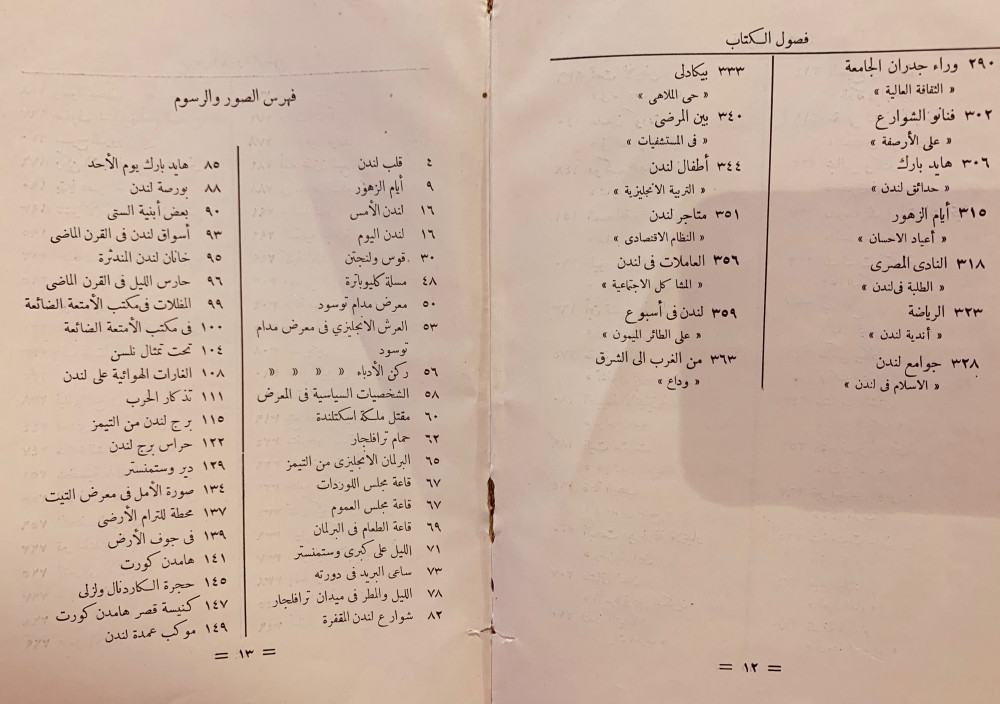 فصول الكتاب
٢٩٠ وراء جدران الجامعة
« الثقافة العالية »
٣٠٢ فنانو الشوارع
« على الأرصفة »
٣٠٦ هايد بارك
« حدائق لندن »
٣١٥ أيام الزهور
« أعياد الاحسان »
٣١٨ النادى المصرى
« الطلبة فى لندن »
٣٢٣ الرياضة
« أندية لندن »
٣٢٨ جوامع لندن
« الاسلام فى لندن »
٣٣٣ بيكادلى
« حى الملاهى »
٣٤٠ بين المرضى
« فى المستشفيات »
٣٤٤ أطفال لندن
« التربية الانجليزية »
٣٥١ متاجر لندن
« النظام الاقتصادى »
٣٥٦ العاملات فى لندن
« المشاكل الاجتماعية »
٣٥٩ لندن فى أسبوع
« على الطائر الميمون »
٣٦٣ من الغرب الى الشرق
« وداع »
= ١٢ =
فهرس الصور والرسوم
٤ قلب لندن
٩ أيام الزهور
١٦ لندن الأمس
١٦ لندن اليوم
٣٠ قوس ولنجتن
٤٨ مسلة كليوباترة
٥٠ معرض مدام توسود
٥٣ العرش الانجليزي فى معرض مدام
توسود
٥٦ ركن الأدباء » » » »
٥٨ الشخصيات السياسية فى المعرض
٦٠ مقتل ملكة اسكتلندة
٦٢ حمام ترافلجار
٦٥ البرلمان الانجليزى من التيمز
٦٧ قاعة مجلس اللوردات
٦٧ قاعة مجلس العموم
٦٩ قاعة الطعام فى البرلمان
٧١ الليل على كبرى وستمنستر
٧٣ ساعى البريد فى دورته
٧٨ الليل والمطر فى ميدان ترافلجار
٨٢ شوارع لندن المقفرة
٨٥ هايد بارك يوم الأحد
٨٨ بورصة لندن
٩٠ بعض أبنية الستى
٩٣ أسواق لندن فى القرن الماضى
٩٥ خانان لندن المندثرة
٩٦ حارس الليل فى القرن الماضى
٩٩ المظلات فى مكتب الأمتعة الضائعة
١٠٠ فى مكتب الأمتعة الضائعة
١٠٤ تحت تمثال نلسن
١٠٨ الغارات الهوائية على لندن
١١١ تذكار الحرب
١١٥ برج لندن من التيمز
١٢٢ حراس برج لندن
١٢٩ دير وستمنستر
١٣٤ صورة الأمل فى معرض التيت
١٣٧ محطة للترام الأرضى
١٣٩ فى جوف الأرض
١٤١ هامدن كورت
١٤٥ حجرة الكاردنال ولزلى
١٤٧ كنيسة قصر هامدن كورت
١٤٩ موكب عمدة لندن
= ١٣ =